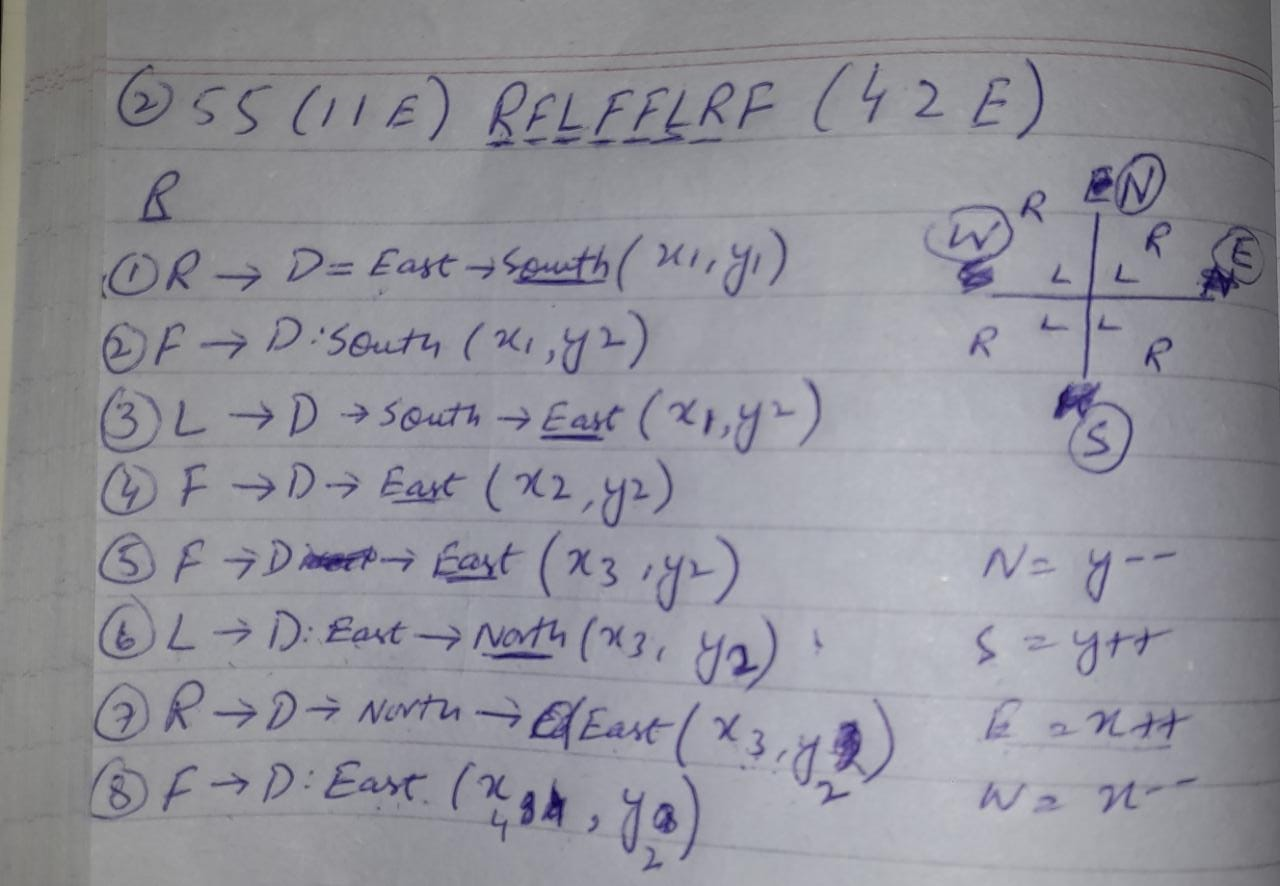 ② 55 (11E) RFLFFLRF (42 E)
R
① R → D = East → South (x1, y1)
② F → D: South (x1, y2)
③ L → D → South → East (x1, y2)
④ F → D → East (x2, y2)
⑤ F → D → East (x3, y2)
⑥ L → D: East → North (x3, y2)
⑦ R → D → North → East (x3, y2)
⑧ F → D: East. (x4, y2)
N
R R
W E
L L
L L
R R
S
N = y--
S = y++
E = x++
W = x--